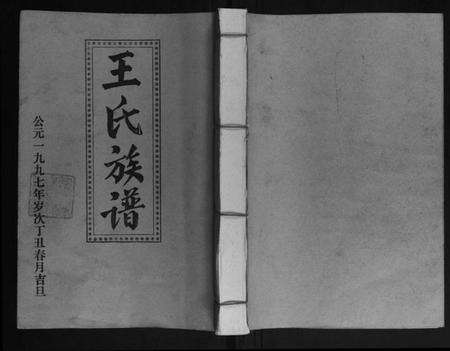 王氏族谱
公元一九九七年岁次丁丑春月吉旦